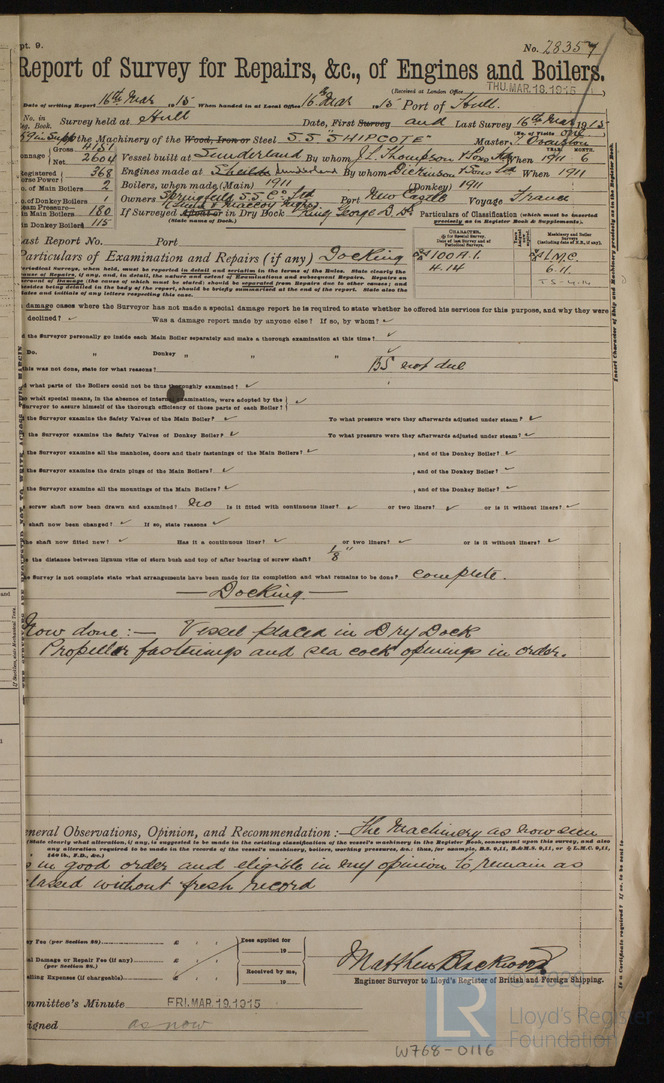 pt. 9.
No. 28357
Report of Survey for Repairs, &c., of Engines and Boilers.
(Received at London Office
THU. MAR. 18. 1915
Date of writing Report 16th Mar 1915 When handed in at Local Office 16 Mar 1915 Port of Hull.
No. in Reg. Book. Survey held at Hull Date, First Survey and Last Survey 16th Mar 1915
(No. of Visits one)
59 in Supp the Machinery of the Wood, Iron or Steel S S "SHIPCOTE" Master
Tonnage Gross
Net 2604
Vessel built at Sunderland By whom J. L. Thompson & Sons Ld When 1911 6
YEAR. MONTH.
Registered Horse Power 368 Engines made at By whom Dickinson & Sons Ld When 1911
No. of Main Boilers 2 Boilers, when made (Main) 1911 (Donkey) 1911
No. of Donkey Boilers 1 Owners Springfield S.S. Co. Ltd Port New Castle Voyage France
Steam Pressure—
in Main Boilers 180 If Surveyed Afloat or in Dry Dock King George D. Dk
(State name of Dock.)
in Donkey Boilers 115
Particulars of Classification (which must be inserted precisely as in Register Book & Supplements).
Last Report No. Port
Particulars of Examination and Repairs (if any) Docking
CHARACTER.
100 A.1.
4.14
Machinery and Boiler Surveys
L.M.C.
6.11
T S - 4.14
damage cases where the Surveyor has not made a special damage report he is required to state whether he offered his services for this purpose, and why they were
declined? ✓ Was a damage report made by anyone else? If so, by whom? ✓
the Surveyor personally go inside each Main Boiler separately and make a thorough examination at this time? ✓
Do. " Donkey " " " ✓
this was not done, state for what reasons? BS not due
what parts of the Boilers could not be thus thoroughly examined? ✓
what special means, in the absence of internal examination, were adopted by the
Surveyor to assure himself of the thorough efficiency of those parts of each Boiler? ✓
the Surveyor examine the Safety Valves of the Main Boiler? ✓ To what pressure were they afterwards adjusted under steam? ✓
the Surveyor examine the Safety Valves of Donkey Boiler? ✓ To what pressure were they afterwards adjusted under steam? ✓
the Surveyor examine all the manholes, doors and their fastenings of the Main Boilers? ✓ , and of the Donkey Boiler? ✓
the Surveyor examine the drain plugs of the Main Boilers? ✓ , and of the Donkey Boiler? ✓
the Surveyor examine all the mountings of the Main Boilers? ✓ , and of the Donkey Boiler? ✓
screw shaft now been drawn and examined? no Is it fitted with continuous liner? ✓ or two liners? ✓ or is it without liners? ✓
shaft now been changed? ✓ If so, state reasons ✓
the shaft now fitted new? ✓ Has it a continuous liner? ✓ or two liners? ✓ or is it without liners? ✓
the distance between lignum vitæ of stern bush and top of after bearing of screw shaft? 1/8"
the Survey is not complete state what arrangements have been made for its completion and what remains to be done? complete.
— Docking —
Now done :— Vessel placed in Dry Dock
Propeller fastenings and sea cock openings in order.
General Observations, Opinion, and Recommendation :— The Machinery as now seen
(State clearly what alteration, if any, is suggested to be made in the existing classification of the vessel's machinery in the Register Book, consequent upon this survey, and also
any alteration required to be made in the records of the vessel's machinery, boilers, working pressures, &c.: thus, for example, B.S. 9,11, B.&M.S. 9,11, or L.M.C. 9,11,
140 lb., F.D., &c.)
is in good order and eligible in my opinion to remain as
classed without fresh record
Survey Fee (per Section 29) £ : : Fees applied for
19
Special Damage or Repair Fee (if any) £ : :
(per Section 28.)
Travelling Expenses (if chargeable) £ : : Received by me,
19
Matthew Blackwood
Engineer Surveyor to Lloyd's Register of British and Foreign Shipping.
Committee's Minute FRI. MAR. 19. 1915
Signed as now
LR
Lloyd's Register
Foundation
W768-0116